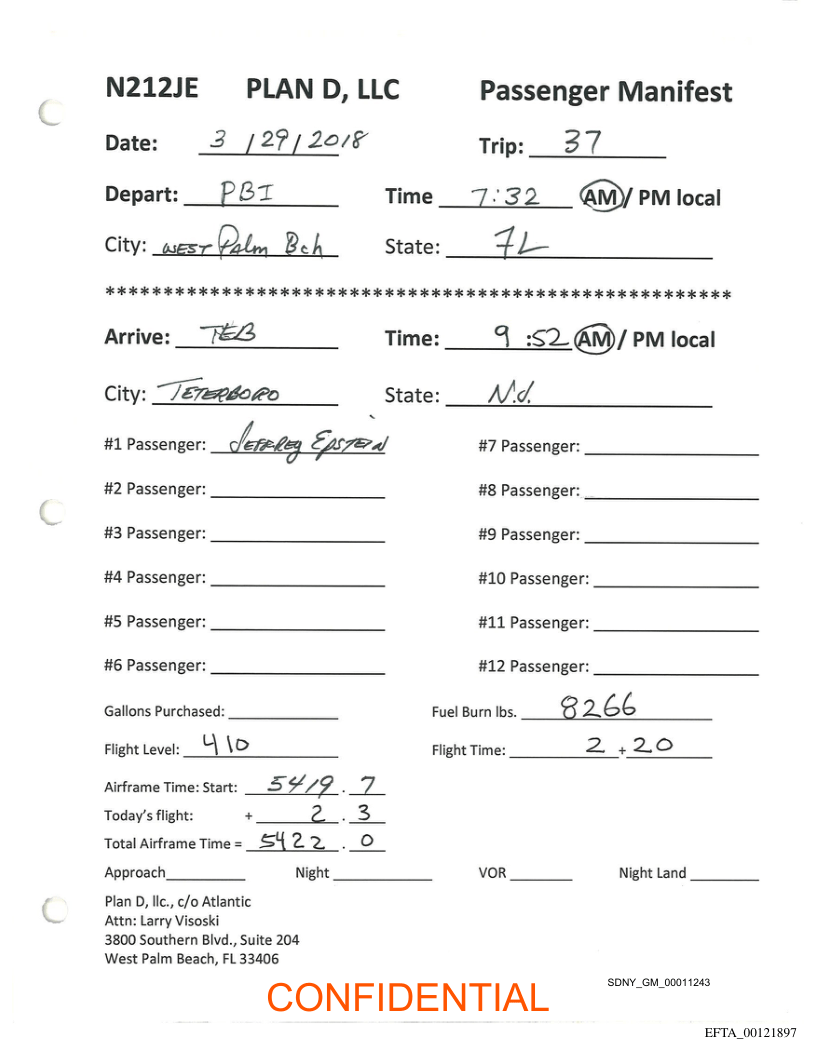 N212JE PLAN D, LLC Passenger Manifest
Date: 3 / 29 / 2018 Trip: 37
Depart: PBI Time 7:32 AM / PM local
City: WEST Palm Bch State: FL
******************************************************
Arrive: TEB Time: 9 :52 AM / PM local
City: TETERBORO State: N.J.
#1 Passenger: JEFFREY EPSTEIN #7 Passenger:
#2 Passenger: #8 Passenger:
#3 Passenger: #9 Passenger:
#4 Passenger: #10 Passenger:
#5 Passenger: #11 Passenger:
#6 Passenger: #12 Passenger:
Gallons Purchased: Fuel Burn lbs. 8266
Flight Level: 410 Flight Time: 2 + 20
Airframe Time: Start: 5419 . 7
Today's flight: + 2 . 3
Total Airframe Time = 5422 . 0
Approach Night VOR Night Land
Plan D, llc., c/o Atlantic
Attn: Larry Visoski
3800 Southern Blvd., Suite 204
West Palm Beach, FL 33406
SDNY_GM_00011243
CONFIDENTIAL
EFTA_00121897